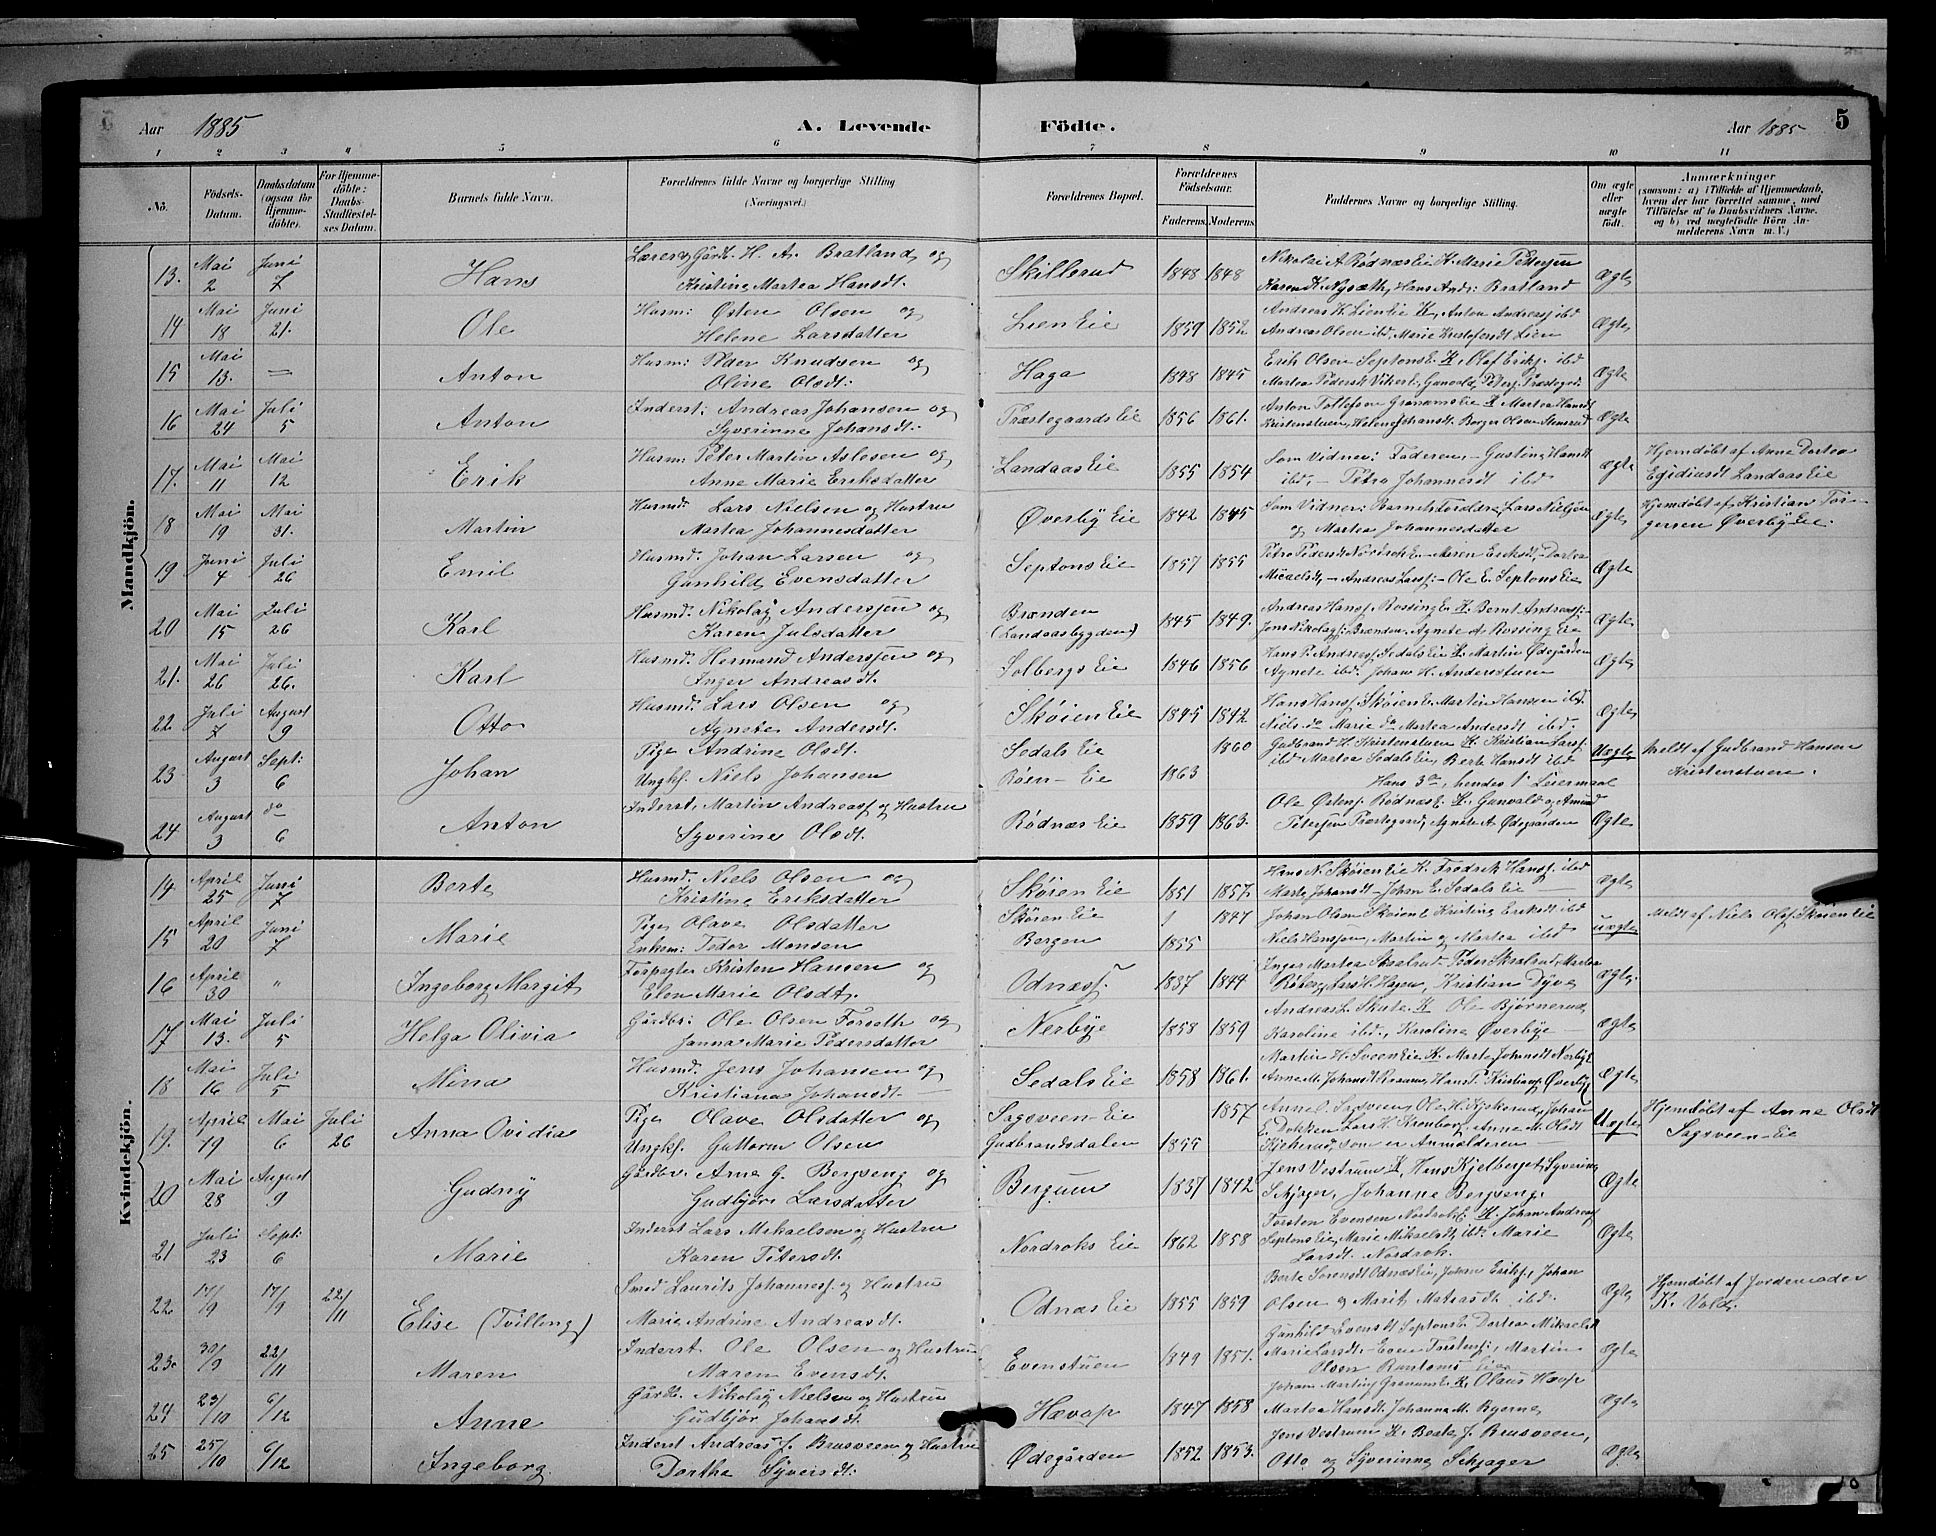 Aar 1885
A. Levende Födte.
Aar 1885
5
1 2 3 4 5 6 7 8 9 10 11
No.
Födsels-Datum.
Daabsdatum (ogsaa for Hjemme-döbte).
For Hjemme-döbte: Daabs-Stadfæstel-ses Datum.
Barnets fulde Navn.
Forældrenes fulde Navne og borgerlige Stilling
(Næringsvei.)
Forældrenes Bopæl.
Forældrenes Födselsaar.
Faderens. Moderens.
Faddernes Navne og borgerlige Stilling.
Om ægte eller uægte födt.
Anmærkninger
(saasom: a) i Tilfælde af Hjemmedaab, hvem der har forrettet samme, med Tilföielse af to Daabsvidners Navne, og b) ved uægtefödte Börn An-melderens Navn m. V.)
Mandkjön.
13. Mai 2 Juni 7 Hans Lærer og Gårdb. H. A. Bratland og
Kristine Martea Hansdt. Skillerud 1848 1848 Nikolai A. Rødnæs Eie K. Marie Pettersen
Karen K. Nysæth, Hans Andr: Bratland Ægte
14 Mai 18 Juni 21. Ole Husm: Østen Olsen og
Helene Larsdatter Lien Eie 1859 1852 Andreas H. Lien Eie K, Anton Andreasf ibd
Andreas Olsen ibd, Marie Kristofersdt Lien Ægte
15 Mai 13. Anton Husm: Peder Knudsen og
Oline Olsdt: Haga 1848 1845 Erik Olsen Septons E. K, Olaf Eriks. ibd
Ægte
16 Mai 24 Juli 5 Anton Inderst: Andreas Johansen og
Syverinne Johansdt. Præstegaards Eie 1856 1861. Anton Tollefsen Granums Eie K Martea Hansdt
Kristenstuen, Helene Johansdt. Borger Olsen Stensrud Ægte
17. Mai 11 Mai 12 Erik Husm: Peter Martin Aslesen og
Anne Marie Eriksdatter Landaas Eie 1855 1854 Som Vidner: Faderen, – Gustine Hansdt
ibd. – Petra Johannesdt ibd Ægte Hjemdöbt af Anne Dortea
Egidiusdt Landaas Eie
18 Mai 19 Mai 31. Martin Husmd. Lars Nielsen og Hustru
Martea Johannesdatter Øverby Eie 1842 1845 Som Vidner: Barnets Forældre, Lars Nielsen
og Martea Johannesdatter Ægte Hjemdöbt af Kristian Tor-
gersen Øverby Eie.
19 Juni 4 Juli 26 Emil Husmd. Johan Larsen og
Gunhild Evensdatter Septons Eie 1857 1855 Petra Pedersdt Nordrok E. – Maren Eriksdt, – Dortea
Micaelsdt, – Andreas Larsf: – Ole E. Septons Eie Ægte
20 Mai 15 Juli 26 Karl Husmd. Nikolaj Andersen og
Karen Julsdatter Brænden
(Landaasbygden) 1845 1849. Andreas Hansf. Rossing E. K. Bernt Andreasf:
Jens Nikolajf: Brænden, Agnete A. Rossing Eie Ægte
21. Mai 26 Juli 26. Karl Husmd. Hermand Andersen og
Inger Andreasdt. Solbergs Eie 1846 1856 Hans P. Andreasf Sedals Eie K. Martin Ødegården
Agnete ibd. Johan H. Anderstuen Ægte
22 Juli 7 August 9 Otto Husmd. Lars Olsen og
Agnete Andersdt. Skøien Eie 1845 1842 Hans Hansf. Skøien E. Martin Hansen ibd.
Niels do Marie do Martea Andersdt ibd. Ægte
23 August 3 Sept: 6 Johan Pige Andrine Olsdt.
Ungkf. Niels Johansen Sedals Eie
Røen – Eie 1863 1860 Gudbrand H. Kristenstuen K. Kristian Larsf:
ibd Martea Sedals Eie, Berte Hansdt ibd
Hans 3de, hendes 1' Leiermaal Uægte Meldt af Gudbrand Hansen
Kristenstuen.
24 August 3 do 6 Anton Inderst. Martin Andreasf og Hustru
Syverine Olsdt. Rødnæs Eie 1859 1863. Ole Østenf. Rødnæs E. K. Gunvald og Amund
Petersen Præstegaard, Agnete A. Ødegaarden Ægte
Kvindekjön.
14 April 25 Juni 7 Berte Husmd. Niels Olsen og
Kristine Eriksdatter Skøien Eie 1851 1857. Hans N. Skøien Eie K. Fredrik Hansf. ibd
Marte Johansdt – Johan E. Sedals Eie Ægte
15 April 20 Juni 7 Marie Pige Olave Olsdatter
Enkem: Peder Monsen Skøien Eie
Bergen 1855 1847 Johan Olsen Skøien E Kristine Eriksdt ibd
Niels Hansen, Martin og Martea ibd Uægte Meldt af Niels Olsf Skøien Eie
16 April 30 " Ingeborg Margit Forpagter Kristen Hansen og
Elen Marie Olsdt. Odnæs. 1837 1844 Inger Martea Skalrud Peder Skalrud Martea
Røberg, Lars L. Hagen, Kristian Dyve Ægte
17 Mai 13. Juli 5 Helga Olivia Gårdbr: Ole Olsen Forseth og
Janna Marie Pedersdatter Nerbye 1858 1859 Andreas L. Skute K Ole Bjørnerud
Karoline ibd., Karoline Øverbye Ægte
18 Mai 16 Juli 5 Mina Husmd. Jens Johansen og
Kristiana Johansdt. Sedals Eie 1858 1861. Martin H. Sveen Eie K. Marte Johansdt Nerbye
Anne M. Johansdt Rosum, Hans P. Kristianf. Øverbye Ægte
19. April 19 Mai 6 Juli 26 Anna Ovidia Pige Olave Olsdatter og
Ungkf. Guttorm Olsen Sagsveen Eie
Gudbrandsdalen 1855 1857 Anne O. Sagsveen, Ole H. Kjekerud, Johan
E. Dokken Lars H. Kronborg, Anne M. Olsdt
Kjekerud, som er Anmelderen Uægte Hjemdöbt af Anne Olsdt
Sagsveen-Eie
20 Mai 28 August 9 Gudny Gårdbr. Arne G. Bergseng og
Gudbjør Larsdatter Bergum 1837 1842 Jens Vestrum K, Hans Kjelberget, Syverine
Schjager, Johanne Bergseng. Ægte
21 Juli 23 Sept: 6 Marie Inderst Lars Mikaelsen og Hustru
Karen Petersdt. Nordroks Eie 1862 1858 Torsten Evensen Nordroks E. K. Johan Andreasf
Septons Eie, Marie Mikaelsdt, ibd. Marie
Larsdt. Nordrok. Ægte
22 17/9 17/9 22/11 Elise (Tvilling) Smed Laurits Johannesf. og Hustru
Marie Andrine Andreasdt. Odnæs Eie 1855 1859 Berte Sorensdt Odnæs Eie, Johan Eriksf., Johan
Olsen og Marit Mateasdt. ibd. Ægte Hjemdöbt af Jordemoder
K. Vold.
23. 30/9 22/11 Maren Inderst Ole Olsen og Hustru
Maren Evensdt. Evenstuen 1849 1851. Gunhild Evensdt Septons E Dortea Mikaelsdt
Marie Larsdt. – Even Torstenf:, Martin
Olsen Eie Ægte
24 23/10 6/12 Anne Gårdb. Nikolaj Nielsen og Hustru
Gudbjør Johansdt. Hævap 1847 1858 Johan Martin Granum E. K, Olaus Hævap
Martea Hansdt. Johanna M. Bjerne Ægte
25 25/10 6/12 Ingeborg Inderst Andreas J. Brusveen og Hustru
Dorthe Syversdt. Ødegården 1852 1853. Jens Vestrum K. Beate J. Brusveen,
Otto og Syverinne Schjager Ægte